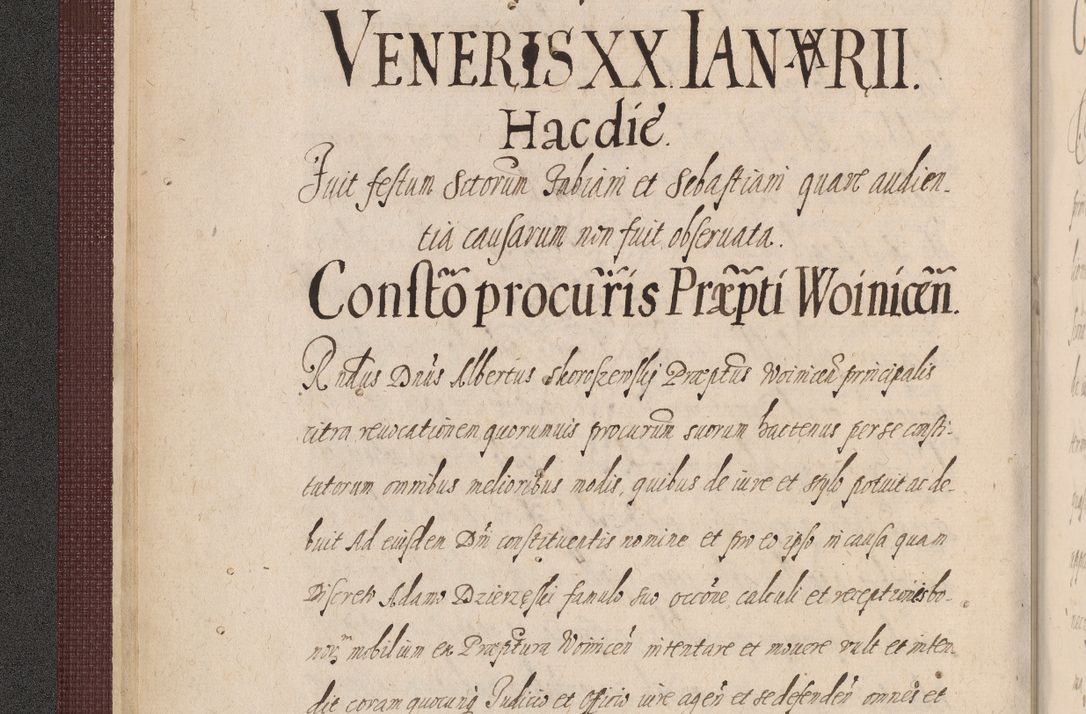 VENERIS XX IANVARII.
Hac die.
Fuit festum Sctorum Fabiani et Sebastiani quare audien-
tia causarum non fuit obseruata.
Constõ procuris Præpti Woinicen.
Rndus Dnus Albertus Skoroszewskj Præptus Woinicen principalis
citra reuocationem quorumuis procurum suorum hactenus per se consti-
tutorum omnibus melioribus modis, quibus de iure et stylo potuit ac de-
buit Ad eiusdem Dni constituentis nomine et pro eo ipso in causa quam
Discreto Adamo Dzierzęski famulo suo occõne calculi et receptionis bo-
nor mobilium ex Præptura Woinicen intentare et mouere vult et inten-
dit coram quocunq Judicio et Officio iure agen et se defenden omnes et